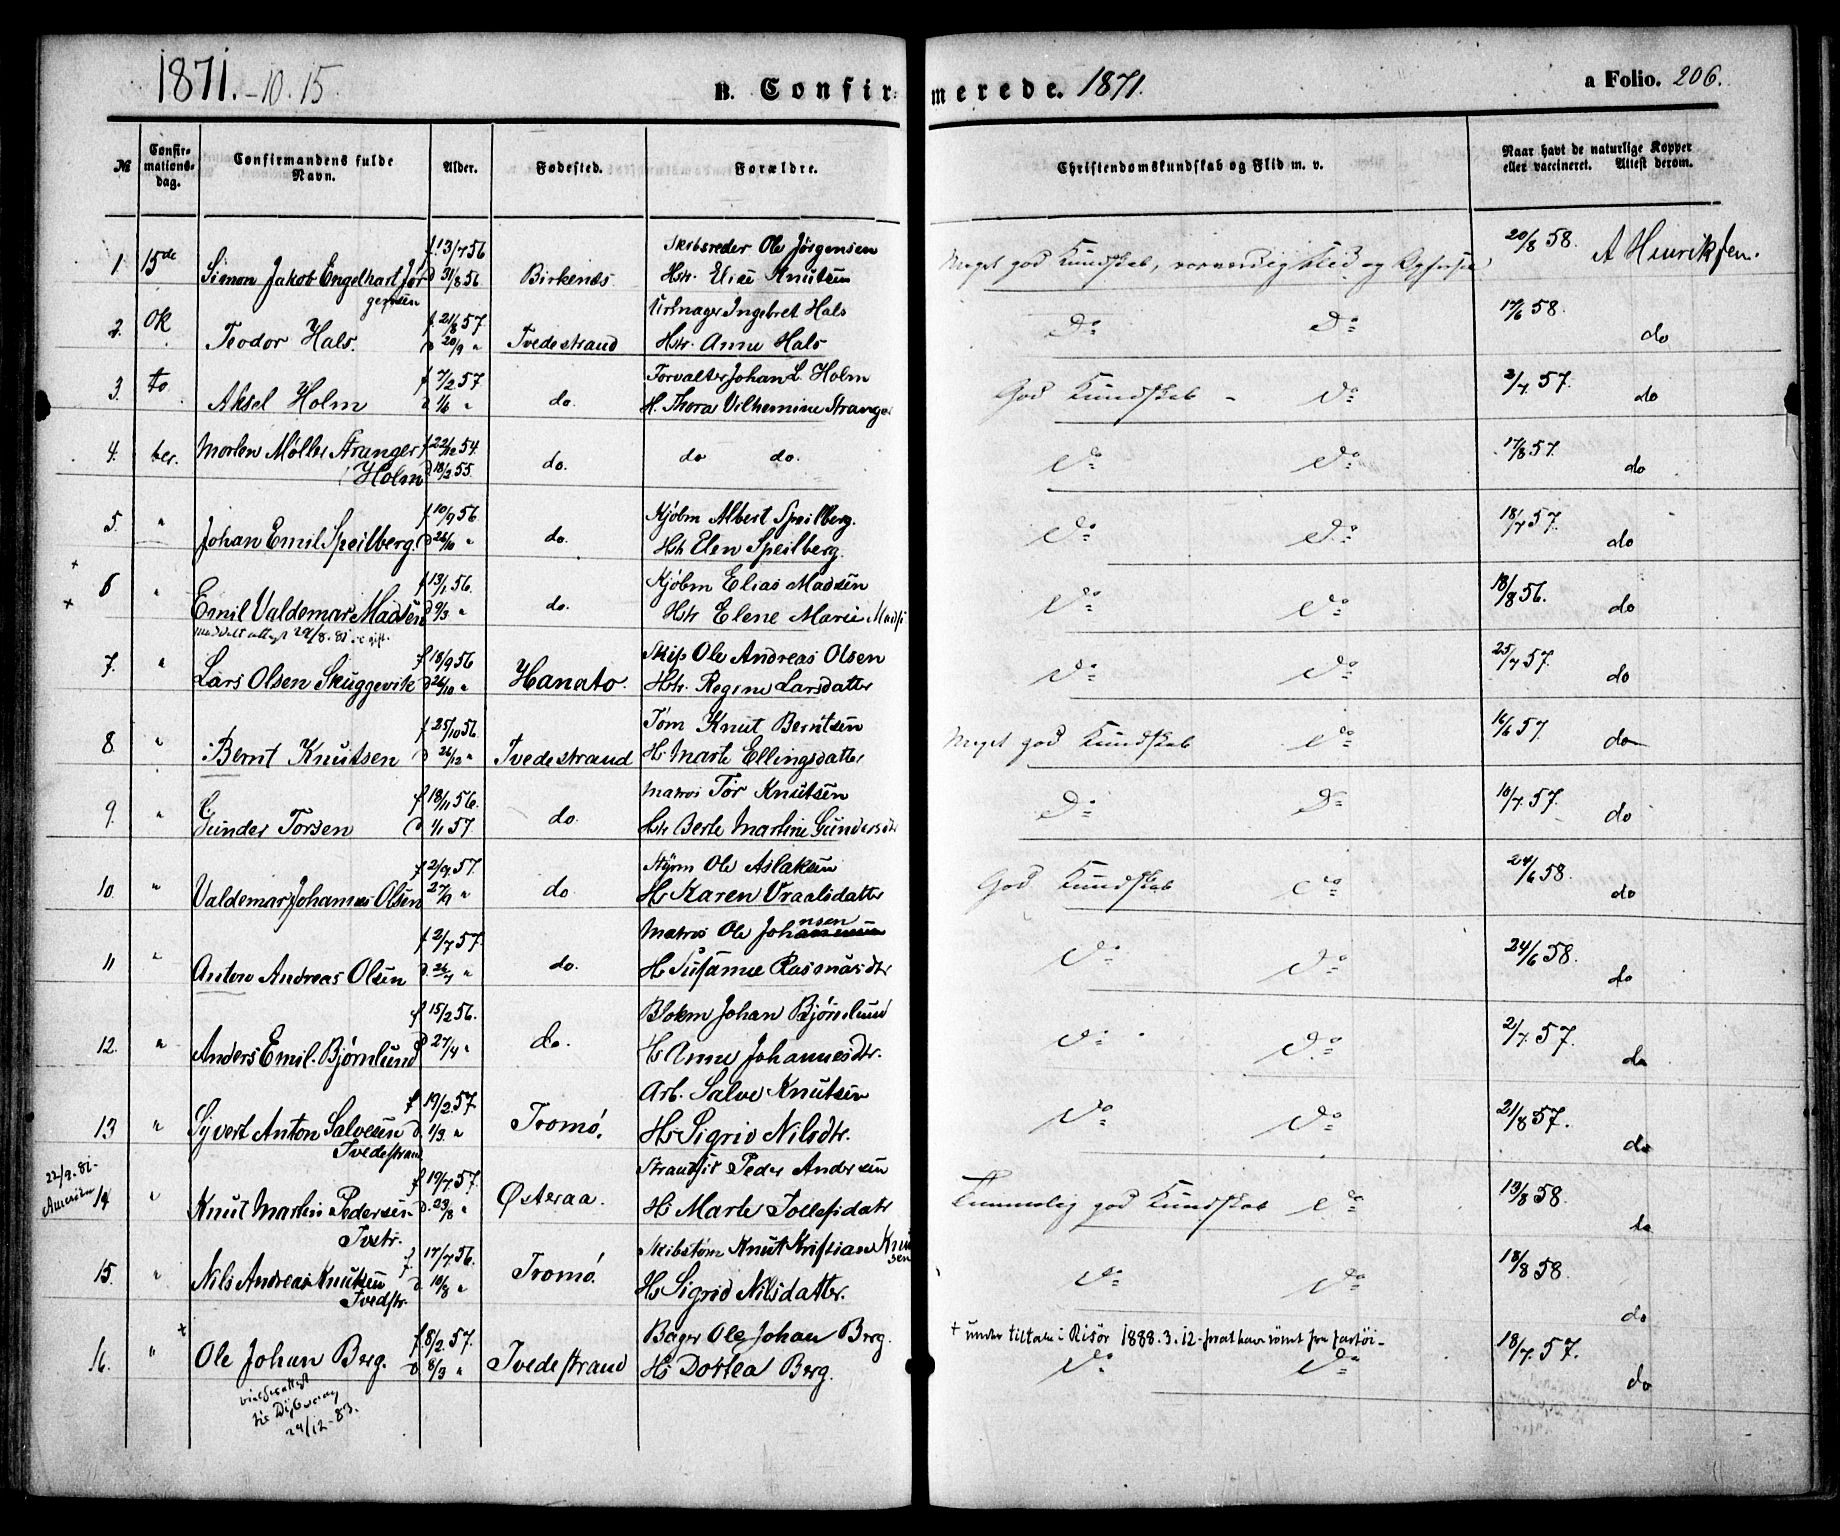 1871. - 10. 15.
B. Confirmerede. 1871.
a Folio. 206.
№
Confirmationsdag.
Confirmandens fulde Navn.
Alder.
Fødested.
Forældre.
Christendomskundskab og Flid m. v.
Naar havt de naturlige Kopper eller vaccineret. Attest derom.
1. 15de Simon Jakob Engelhart Jørgensen f. 13/7 56 d 31/8 56 Birkenæs Skibsreder Ole Jörgensen Hstr. Elise Knutsen Meget god Kundskab, 20/8 58. A Henriksen.
2. Ok Teodor Hals. f. 21/8 57. d 20/9 " Tvedestrand Urmager Ingebret Hals Hstr. Anne Hals Do Do 17/6 58. do
3. to Aksel Holm f 7/2 57 d 1/6 " do. Forvalter Johan L. Holm H. Thora Vilhemine Stranger God Kundskab - do 2/7. 57. do
4. ber. Morten Møller Stranger Holm f 22/12 54. d 18/2 55. do. do do. do do 17/8 57. do
5. " Johan Emil Speilberg. f. 10/9 56. d 26/10 " do. Kjöbm Albert Speilberg. Hstr Elen Speilberg. do do 18/7 57. do
+
6 " Emil Valdemar Madsen f 13/1 56. d 9/3 " do. Kjöbm Elias Madsen Hstr Elene Marie do do 18/8 56. do
+
7. " Lars Olsen Skuggevik f 18/9 56 d 26/10 " Hanato. Skip Ole Andreas Olsen Hstr. Regine Larsdatter do do 25/7 57. do
8. " Bernt Knutsen f 25/10 56. d 26/12 " Tvedestrand Töm Knut Berntsen H Marte Ellingsdatter Meget god Kundskab do 16/6 57. do
9. " Gunder Torsen f 18/11 56. d 1/1 57. do. Matros Tor Knutsen Hstr Berte Martine Gundersdtr Do Do 10/7. 57. do
10. " Valdemar Johannes Olsen f 2/9. 57. 27/9 " do Styrm Ole Aslaksen Hs Karen Vraalsdatter God Kundskab do 24/6 58. do
11 " Anton Andreas Olsen f 2/7 57. d. 26/7 " do. Matros Ole Johannsen Hs Susanne Rasmusdtr do do 24/6 58. do
12. " Anders Emil Bjørnlund f 15/2 56. d 27/4 " do. Blokm Johan Bjørnlund Hs Anne Johannesdtr. do do 2/7. 57. do
13 " Syvert Anton Salvesen Tvedestrand f 19/2. 57. d. 1/3. " Tromö. Arb. Salve Knutsen Hs Sigrid Nilsdtr. do do 21/8 57. do
22/9. 81. Amerika
14 " Knut Martin Pedersen Tvstr. f. 19/7. 57. d. 23/8 " Østeraa. Strandsid Peder Andersen Hs Marte Tollefsdatr Temmelig god Kundskab do 13/8 58. do
15. " Nils Andreas Knutsen Tvedstr. f. 17/7. 56. d 10/8 " Tromö. Skibstöm Knut Kristian Knudsen Hs Sigrid Nilsdatter. do do 18/8 58. do
+
16. " Ole Johan Berg. f. 8/2. 57. d. 8/3 " Tvedestrand Bager Ole Johan Berg. Hs Dortea Berg. + under tiltale i Risör 1888. 3. 12 - do do 18/7. 57. do
24/12 - 83.